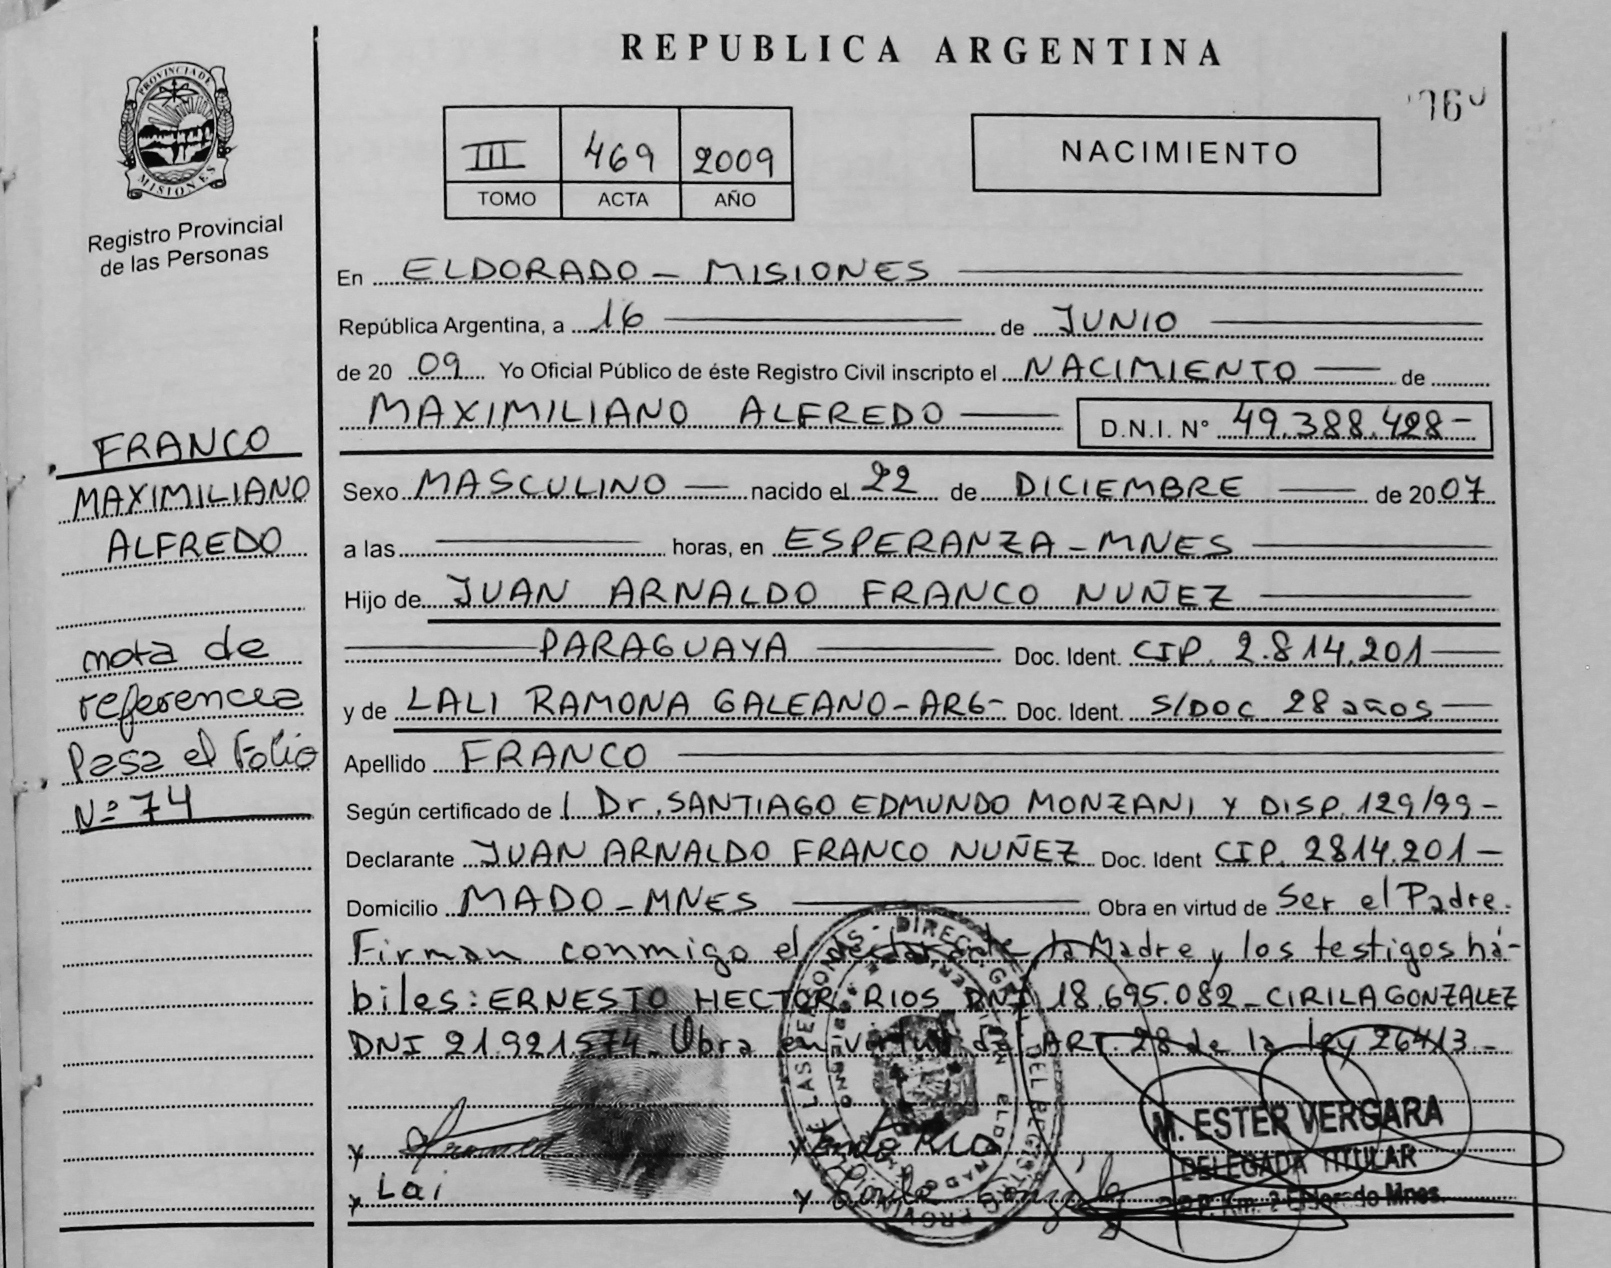 REPUBLICA ARGENTINA
PROVINCIA DE
MISIONES
Registro Provincial
de las Personas
III 469 2009
TOMO ACTA AÑO
NACIMIENTO
En ELDORADO - MISIONES
República Argentina, a 16 de JUNIO
de 20 09 Yo Oficial Público de éste Registro Civil inscripto el NACIMIENTO de
MAXIMILIANO ALFREDO D.N.I. N° 49.388.428-
Sexo MASCULINO nacido el 22 de DICIEMBRE de 2007
a las horas, en ESPERANZA - MNES
Hijo de JUAN ARNALDO FRANCO NUÑEZ
PARAGUAYA Doc. Ident. CIP. 2.814.201
y de LALI RAMONA GALEANO - ARG- Doc. Ident. S/DOC 28 años
Apellido FRANCO
Según certificado de l Dr. SANTIAGO EDMUNDO MONZANI Y DISP. 129/99-
Declarante JUAN ARNALDO FRANCO NUÑEZ Doc. Ident CIP. 2814.201-
Domicilio MADO - MNES Obra en virtud de Ser el Padre.
Firman conmigo el declarante la Madre y los testigos há-
biles: ERNESTO HECTOR RIOS DNI 18.695.082 - CIRILA GONZALEZ
DNI 21.921.574 - Obra en virtud del ART. 28 de la ley 26413 -
Lai
M. ESTER VERGARA
DELEGADA TITULAR
FRANCO
MAXIMILIANO
ALFREDO
nota de
referencia
Pasa el Folio
Nº 74